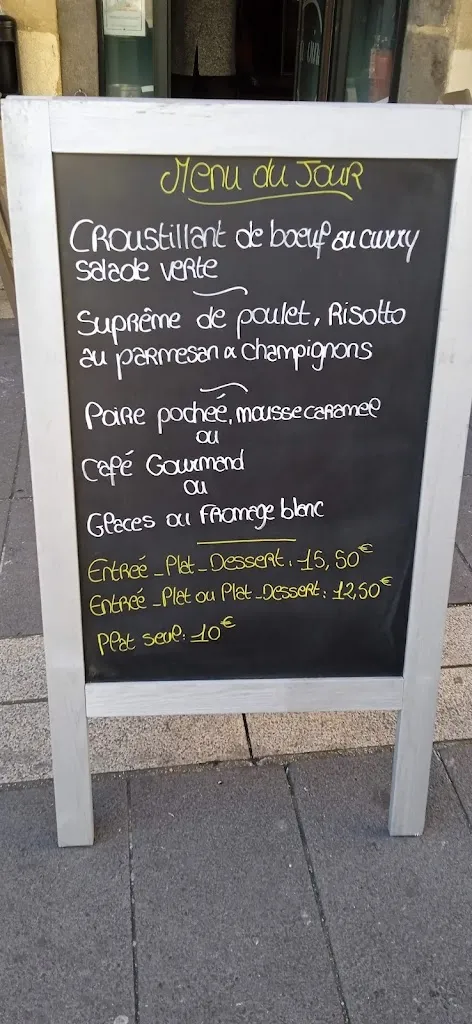 Menu du Jour
Croustillant de boeuf au curry
salade verte
Suprême de poulet, Risotto
au parmesan & champignons
Poire pocheé, mousse caramel
ou
Café Gourmand
ou
Glaces ou Fromage blanc
Entreé - Plat - Dessert : 15,50€
Entreé - Plat ou Plat - Dessert : 12,50€
Plat seul : 10€